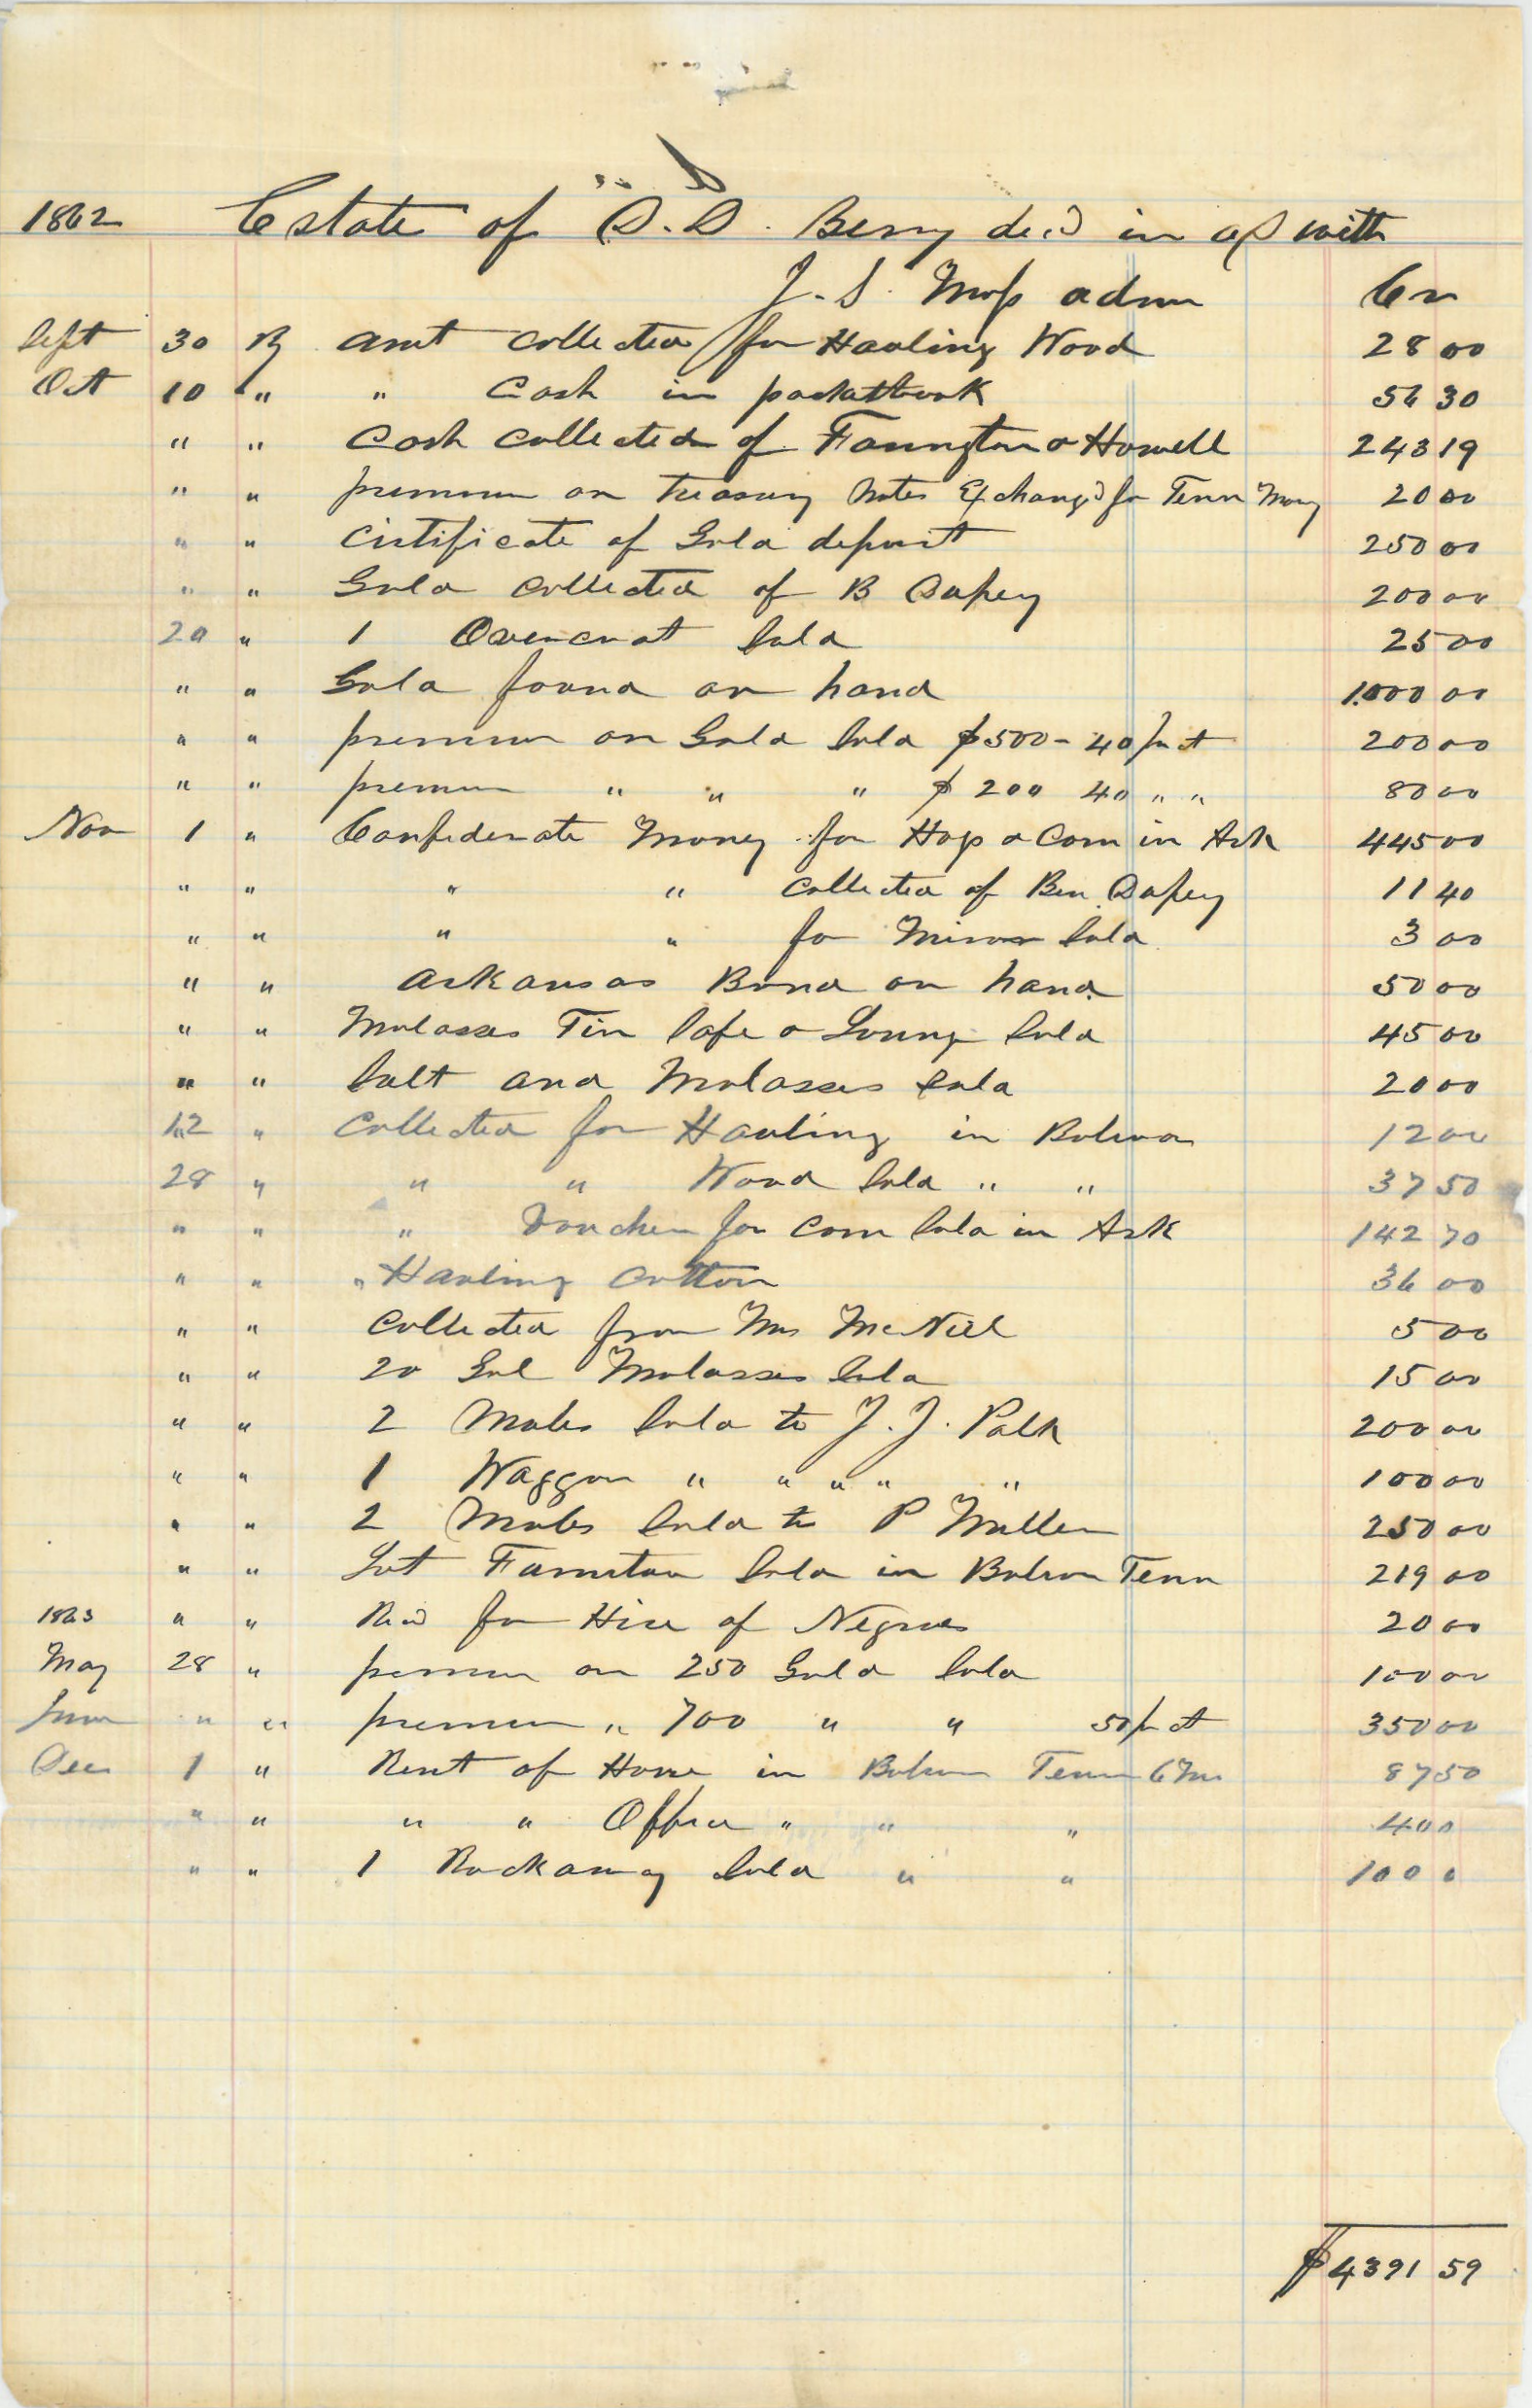 1862 Estate of D. D. Berry decd in a/c with
J. S. Moss admr Cr
Sept 30 By amt collected for Hauling Wood 28 00
Oct 10 " " Cash in pocketbook 56 30
" " Cash collected of Farington & Howell 243 19
" " premium on treasury Notes Exchangd for Tenn Mony 20 00
" " Cirtificate of Gold deposit 250 00
" " Gold collected of B Dupey 200 00
20 " 1 Overcoat Sold 25 00
" " Gold found on hand 1000 00
" " premium on Gold Sold $500 - 40 pr ct 200 00
" " premium " " " $ 200 40 " " 80 00
Nov 1 " Confederate Money for Hogs & Corn in Ark 445 00
" " " " collected of Ben Dupey 11 40
" " " " for Mirror Sold 3 00
" " Arkansas Bond on hand 50 00
" " Molasses Tin Safe & Loung Sold 45 00
" " Salt and Molasses Sold 20 00
12 " Collected for Hauling in Bolivar 12 00
28 " " " Wood Sold " " 37 50
" " " Voucher for Corn Sold in Ark 142 70
" " " Hauling Cotton 36 00
" " Collected from Mrs McNeil 5 00
" " 20 Gal Molasses Sold 15 00
" " 2 Mules Sold to J. J. Polk 200 00
" " 1 Waggon " " " " " 100 00
" " 2 Mules Sold to P Miller 250 00
" " Lot Furniture Sold in Bolivar Tenn 219 00
1863 " " Recd for Hire of Negroes 20 00
May 28 " premium on 250 Gold Sold 100 00
June " " premium " 700 " " 50 pr ct 350 00
Dec 1 " Rent of House in Bolivar Tenn 6 Mos 87 50
" " " " Office " " " 40 0
" " 1 Rockaway Sold " " 100 0
$ 4391 59